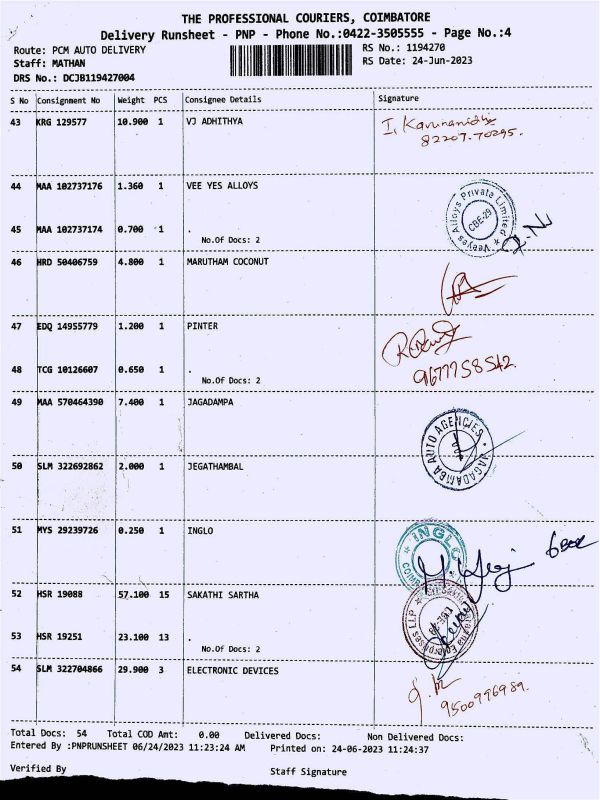 THE PROFESSIONAL COURIERS, COIMBATORE
Delivery Runsheet - PNP - Phone No.:0422-3505555 - Page No.:4
Route: PCM AUTO DELIVERY
RS No.: 1194270
Staff: MATHAN
RS Date: 24-Jun-2023
DRS No.: DCJB119427004
S No Consignment No Weight PCS Consignee Details Signature
43 KRG 129577 10.900 1 VJ ADHITHYA
I. Karunanidhi
82207-70295.
44 MAA 102737176 1.360 1 VEE YES ALLOYS
Veeyes Alloys Private Limited
CBE-29
45 MAA 102737174 0.700 1 .
No.Of Docs: 2
46 HRD 50406759 4.800 1 MARUTHAM COCONUT
47 EDQ 14955779 1.200 1 PINTER
9677758542
48 TCG 10126607 0.650 1 .
No.Of Docs: 2
49 MAA 570464390 7.400 1 JAGADAMPA
JAGADAMBA AUTO AGENCIES
50 SLM 322692862 2.000 1 JEGATHAMBAL
51 MYS 29239726 0.250 1 INGLO
INGLO
52 HSR 19088 57.100 15 SAKATHI SARTHA
53 HSR 19251 23.100 13 .
No.Of Docs: 2
54 SLM 322704866 29.900 3 ELECTRONIC DEVICES
9500996989.
Total Docs: 54 Total COD Amt: 0.00 Delivered Docs: Non Delivered Docs:
Entered By :PNPRUNSHEET 06/24/2023 11:23:24 AM Printed on: 24-06-2023 11:24:37
Verified By
Staff Signature